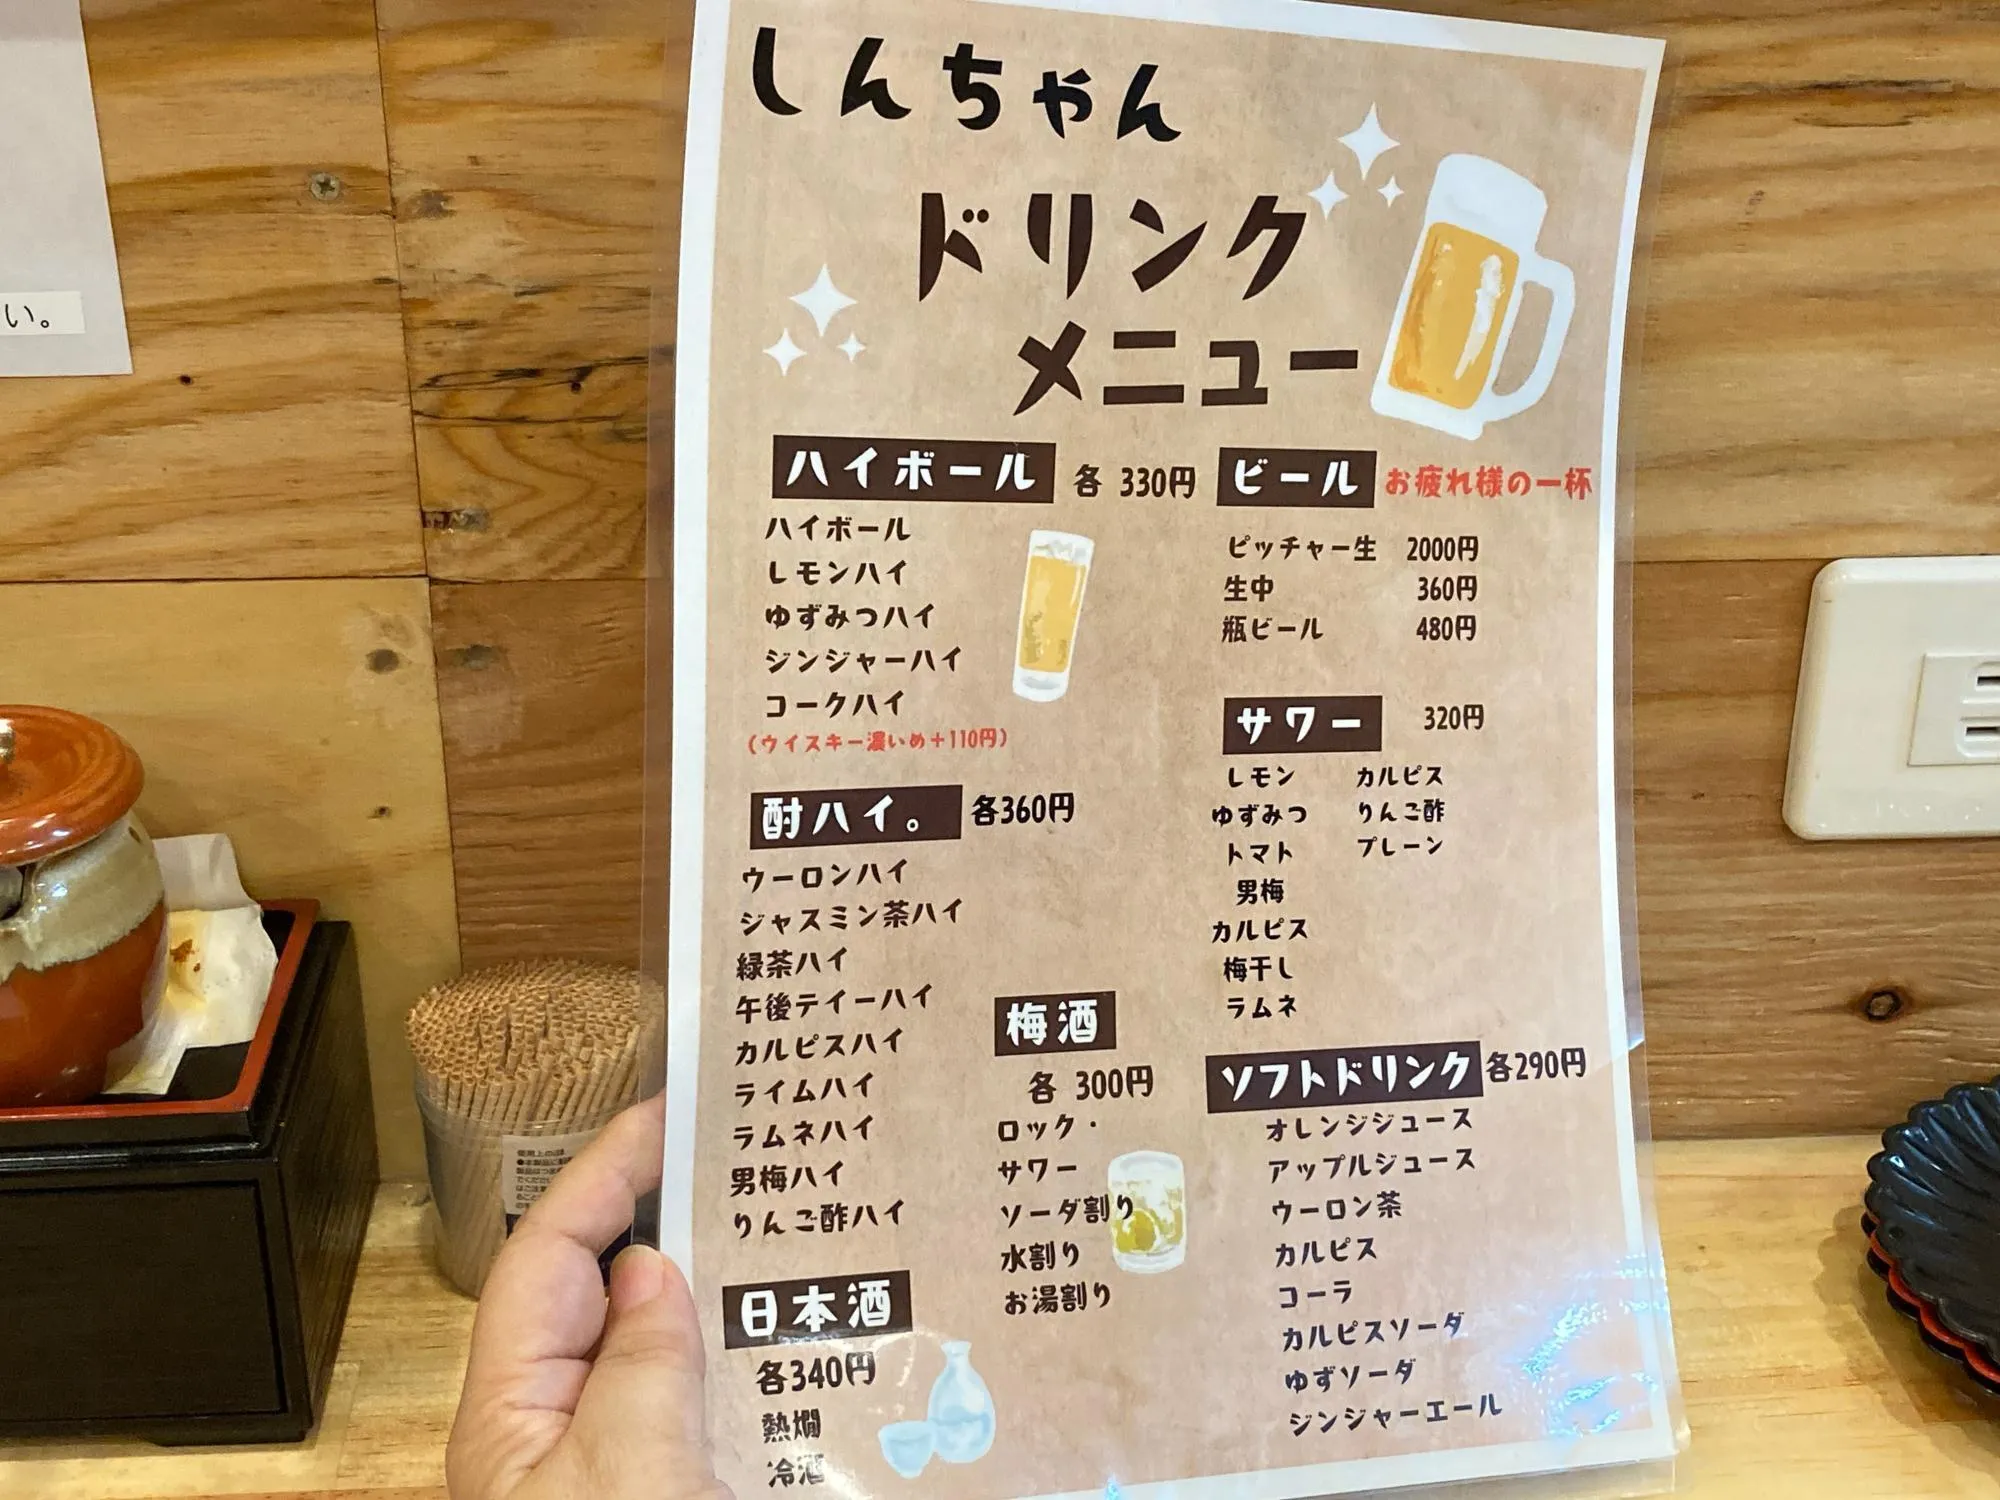 い。
しんちゃん
ドリンク
メニュー
ハイボール 各 330円
ハイボール
レモンハイ
ゆずみつハイ
ジンジャーハイ
コークハイ
(ウイスキー濃いめ+110円)
酎ハイ。 各360円
ウーロンハイ
ジャスミン茶ハイ
緑茶ハイ
午後ティーハイ
カルピスハイ
ライムハイ
ラムネハイ
男梅ハイ
りんご酢ハイ
日本酒
各340円
熱燗
冷酒
梅酒
各 300円
ロック・
サワー
ソーダ割り
水割り
お湯割り
ビール お疲れ様の一杯
ピッチャー生 2000円
生中 360円
瓶ビール 480円
サワー 320円
レモン カルピス
ゆずみつ りんご酢
トマト プレーン
男梅
カルピス
梅干し
ラムネ
ソフトドリンク 各290円
オレンジジュース
アップルジュース
ウーロン茶
カルピス
コーラ
カルピスソーダ
ゆずソーダ
ジンジャーエール